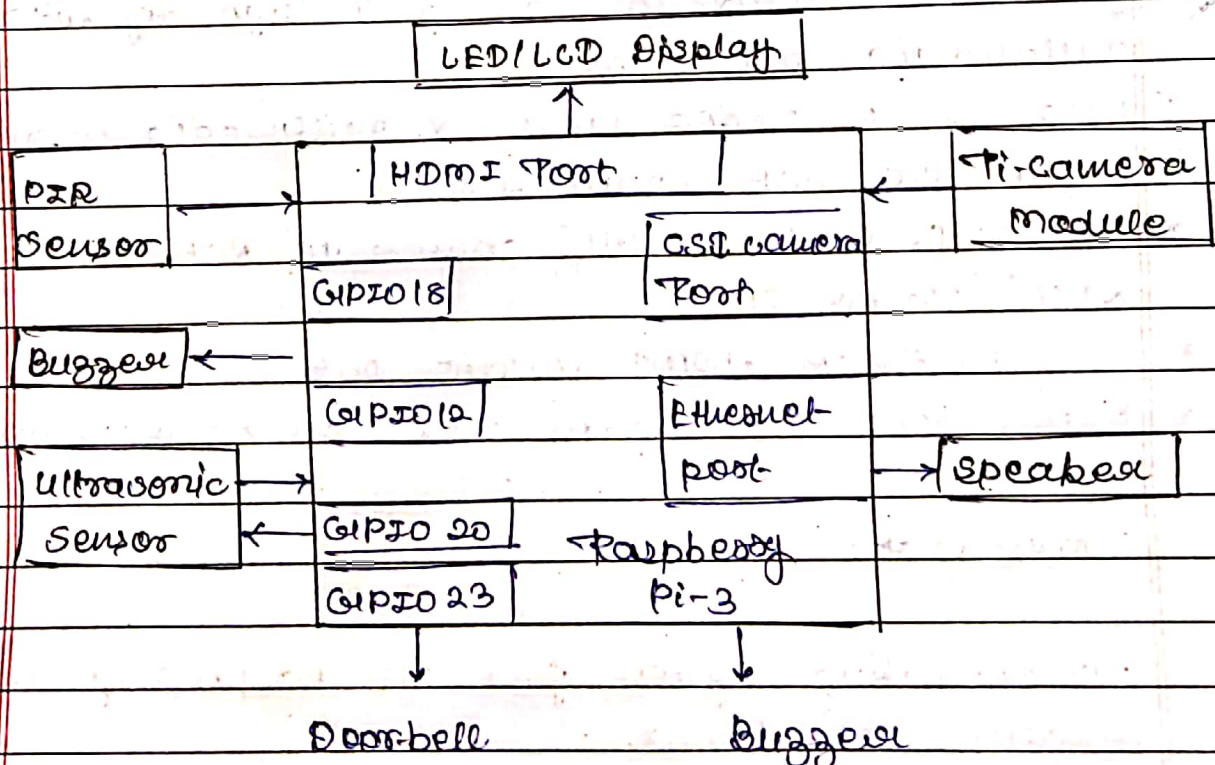 LED/LCD Display
HDMI Port
PIR
Sensor
Pi-camera
Module
CSI camera
Port
GPIO 18
Buzzer
GPIO 12
Ethernet
port
Ultrasonic
Sensor
Speaker
GPIO 20
Raspberry
Pi-3
GPIO 23
Door-bell
Buzzer